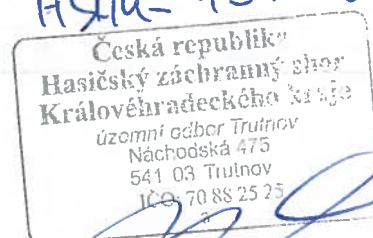 Česká republika
Hasičský záchranný sbor
Královéhradeckého kraje
územní odbor Trutnov
Náchodská 475
541 03 Trutnov
IČO: 70 88 25 25